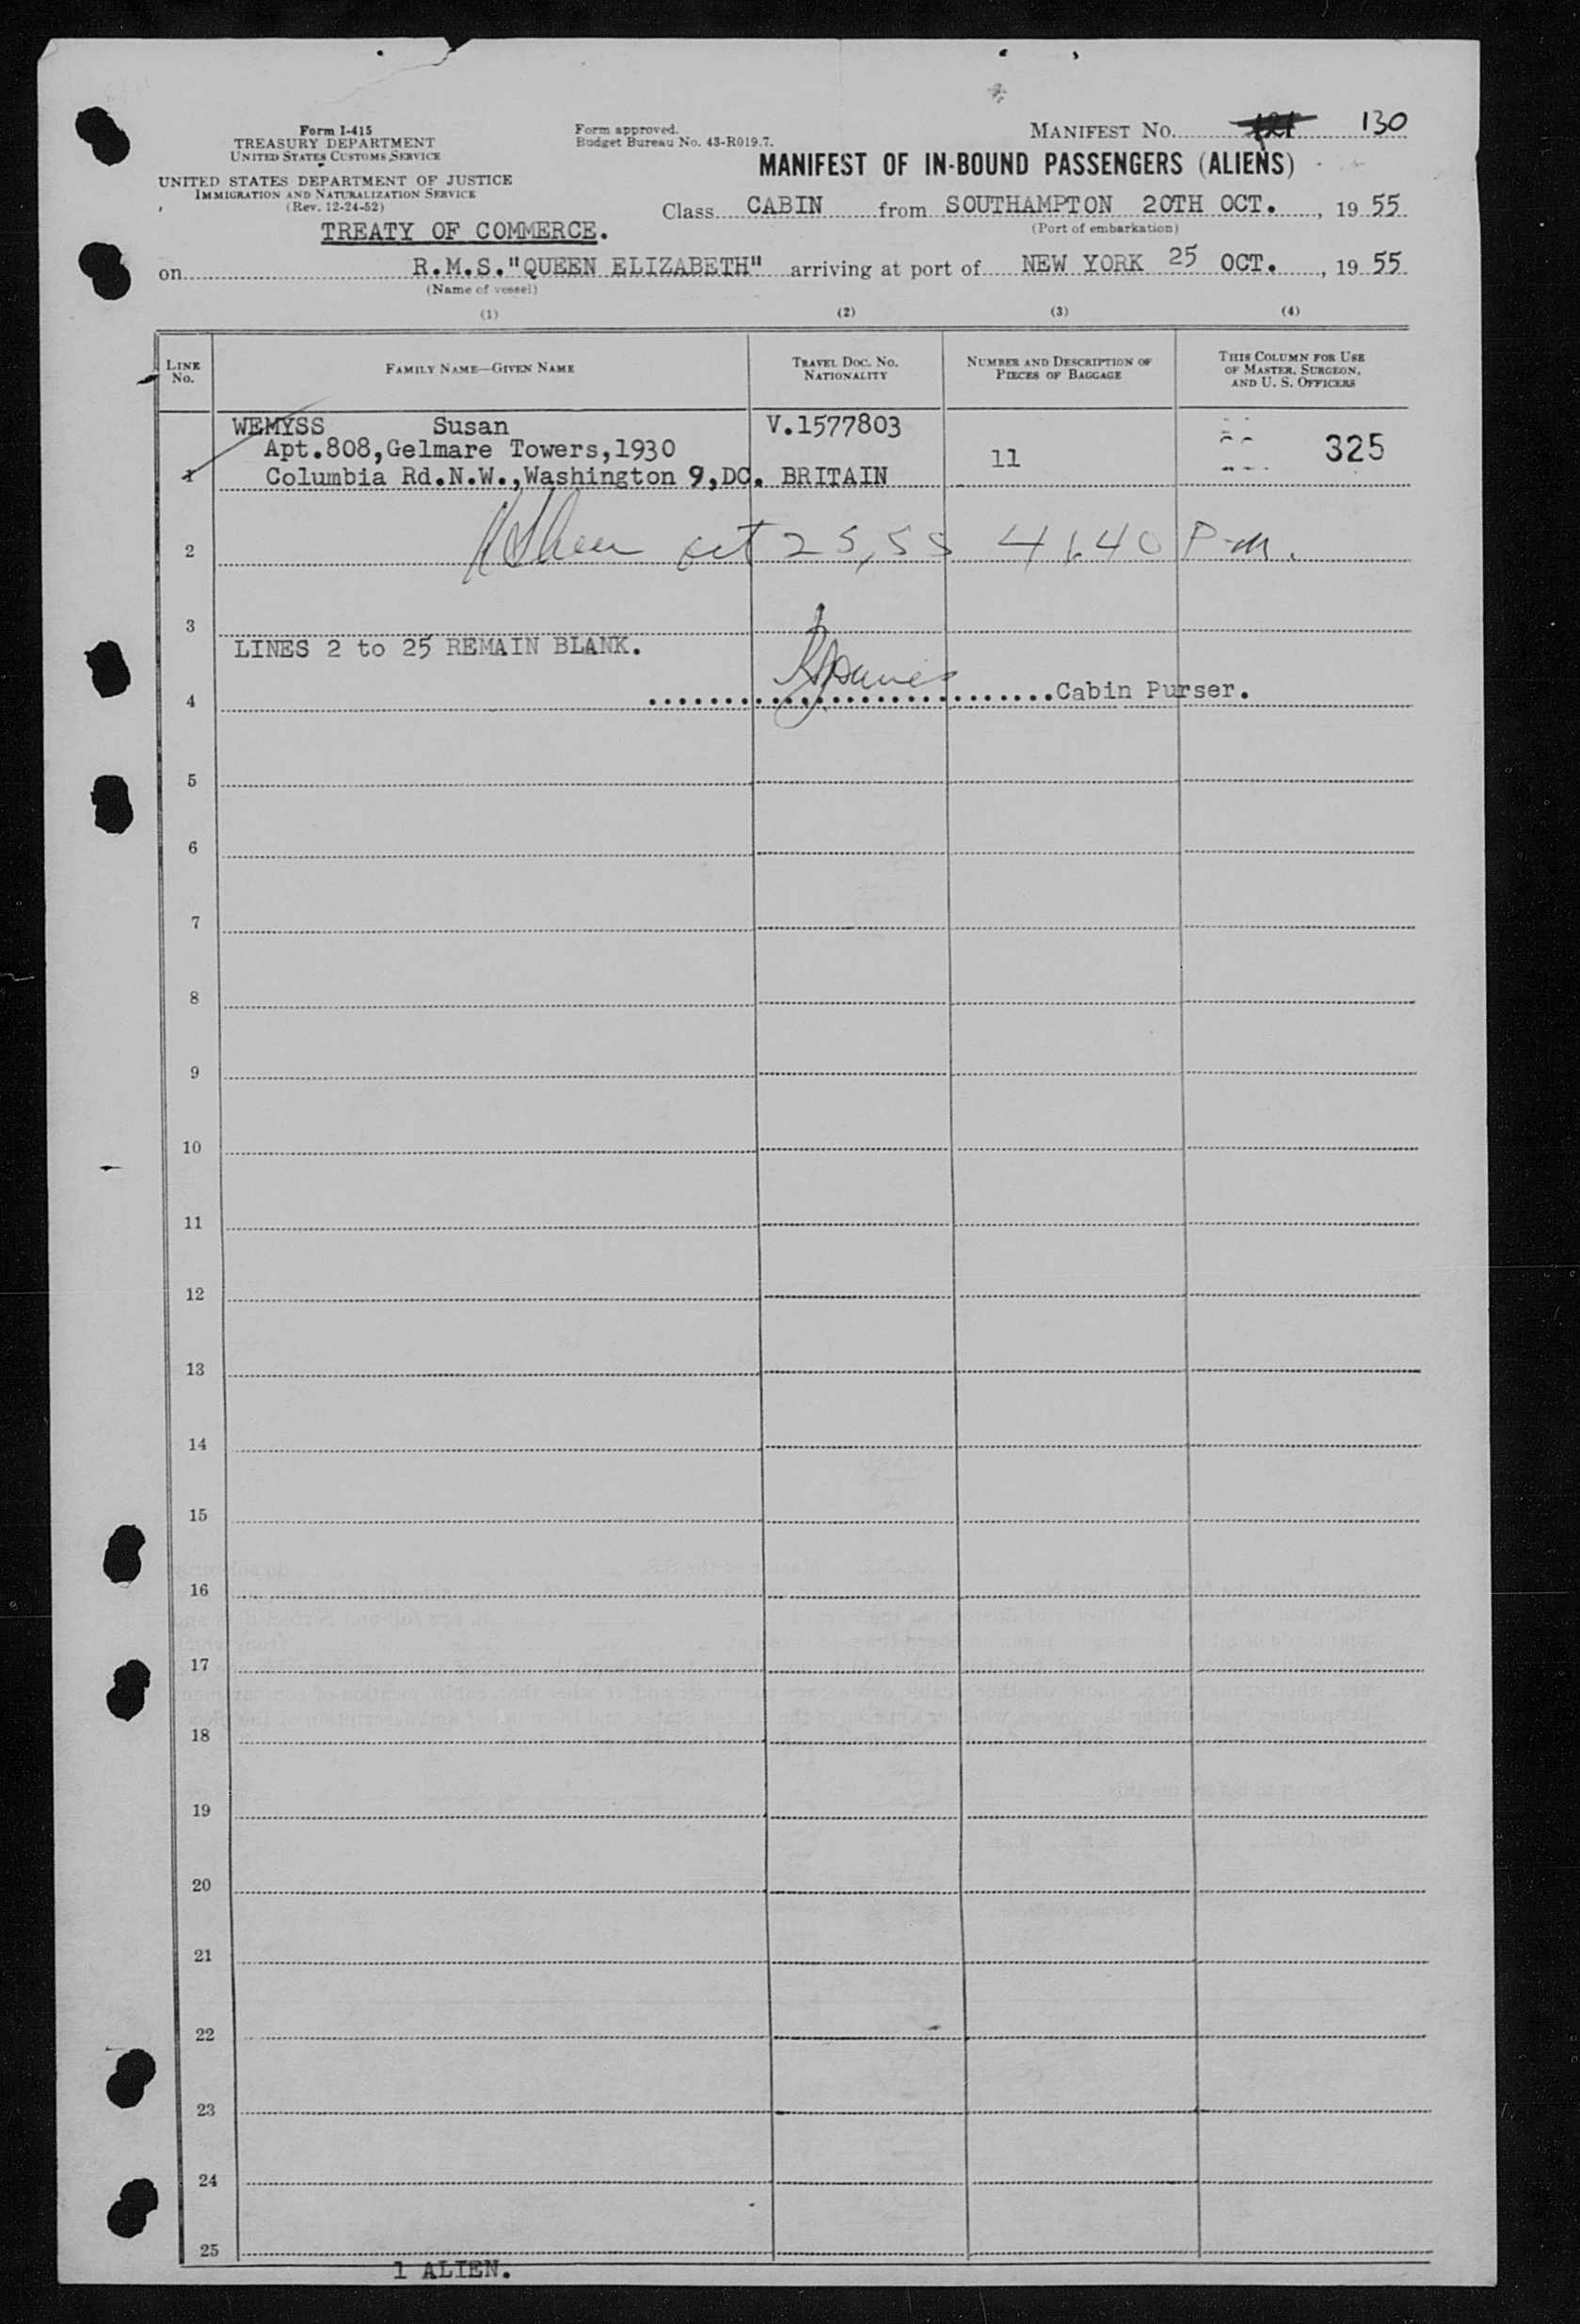 Form I-415
TREASURY DEPARTMENT
UNITED STATES CUSTOMS SERVICE
UNITED STATES DEPARTMENT OF JUSTICE
IMMIGRATION AND NATURALIZATION SERVICE
(Rev. 12-24-52)
Form approved.
Budget Bureau No. 43-R019.7.
MANIFEST NO. 130
MANIFEST OF IN-BOUND PASSENGERS (ALIENS)
Class CABIN from SOUTHAMPTON 20TH OCT., 19 55
(Port of embarkation)
TREATY OF COMMERCE.
on R.M.S."QUEEN ELIZABETH" arriving at port of NEW YORK 25 OCT., 19 55
(Name of vessel)
(1) (2) (3) (4)
LINE No.
FAMILY NAME—GIVEN NAME
TRAVEL DOC. NO. NATIONALITY
NUMBER AND DESCRIPTION OF PIECES OF BAGGAGE
THIS COLUMN FOR USE OF MASTER, SURGEON, AND U. S. OFFICERS
WEMYSS Susan V.1577803
Apt.808,Gelmare Towers,1930 11 325
1 Columbia Rd.N.W.,Washington 9,DC. BRITAIN
2 oct 25,55 4:40 P.m.
3
LINES 2 to 25 REMAIN BLANK.
4 Cabin Purser.
5
6
7
8
9
10
11
12
13
14
15
16
17
18
19
20
21
22
23
24
25
1 ALIEN.